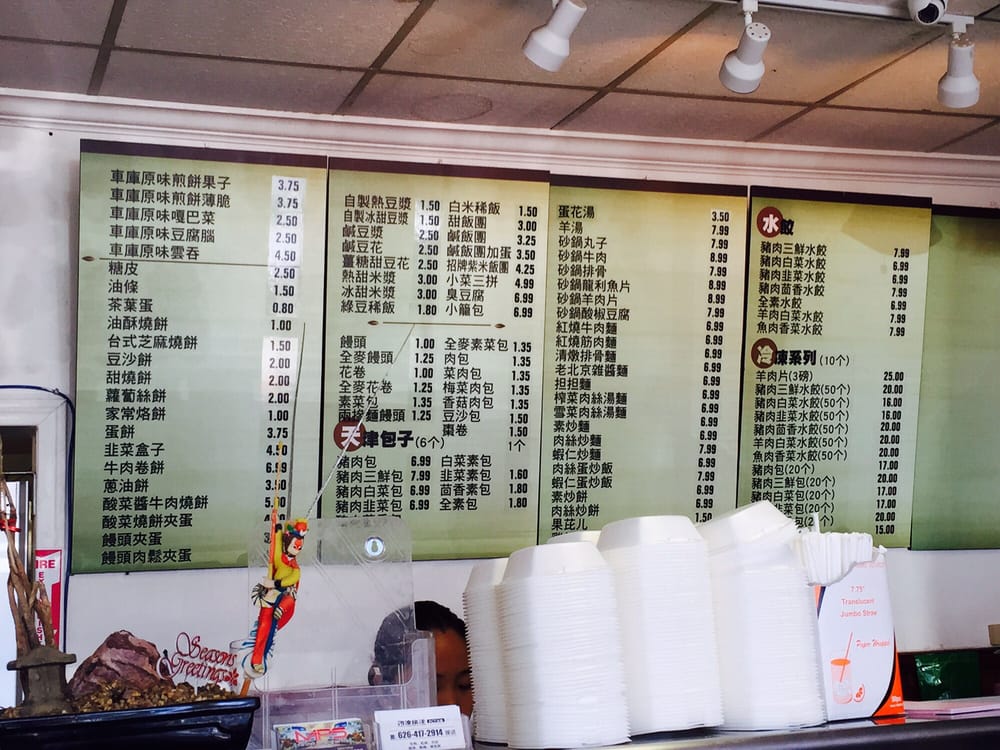 車庫原味煎餅果子 3.75
車庫原味煎餅薄脆 3.75
車庫原味嘎巴菜 2.50
車庫原味豆腐腦 2.50
車庫原味雲吞 4.50
糖皮 2.50
油條 1.50
茶葉蛋 0.80
油酥燒餅 1.00
台式芝麻燒餅 1.50
豆沙餅 2.00
甜燒餅 2.00
蘿蔔絲餅 2.00
家常烙餅 1.00
蛋餅 3.75
韭菜盒子
牛肉卷餅 6.99
蔥油餅
酸菜醬牛肉燒餅
酸菜燒餅夾蛋
饅頭夾蛋
饅頭肉鬆夾蛋
自製熱豆漿 1.50 白米稀飯 1.50
自製冰甜豆漿 1.50 甜飯團 3.00
鹹豆漿 2.50 鹹飯團 3.25
鹹豆花 2.50 鹹飯團加蛋 3.50
薑糖甜豆花 2.50 招牌紫米飯團 4.25
熱甜米漿 3.00 小菜三拼 4.99
冰甜米漿 3.00 臭豆腐 6.99
綠豆稀飯 1.80 小籠包 6.99
饅頭 1.00 全麥素菜包 1.35
全麥饅頭 1.25 肉包 1.35
花卷 1.00 菜肉包 1.35
全麥花卷 1.25 梅菜肉包 1.35
素菜包 1.35 香菇肉包 1.35
兩摻麵饅頭 1.25 豆沙包 1.50
棗卷 1.50
天津包子(6个) 1个
豬肉包 6.99 白菜素包
豬肉三鮮包 7.99 韭菜素包 1.60
豬肉白菜包 6.99 茴香素包 1.80
豬肉韭菜包 6.99 全素包 1.80
蛋花湯 3.50
羊湯 7.99
砂鍋丸子 7.99
砂鍋牛肉 8.99
砂鍋排骨 7.99
砂鍋龍利魚片 8.99
砂鍋羊肉片 8.99
砂鍋酸椒豆腐 7.99
紅燒牛肉麵 6.99
紅燒筋肉麵 7.99
清燉排骨麵 6.99
老北京雜醬麵 6.99
担担麵 6.99
榨菜肉絲湯麵 6.99
雪菜肉絲湯麵 6.99
素炒麵 6.99
肉絲炒麵 6.99
蝦仁炒麵 7.99
肉絲蛋炒飯 6.99
蝦仁蛋炒飯 7.99
素炒餅 6.99
肉絲炒餅 6.99
果茈儿 1.50
水餃
豬肉三鮮水餃 7.99
豬肉白菜水餃 6.99
豬肉韭菜水餃 6.99
豬肉茴香水餃 7.99
全素水餃 6.99
羊肉白菜水餃 7.99
魚肉香菜水餃 7.99
冷凍系列(10个)
羊肉片(3磅) 25.00
豬肉三鮮水餃(50个) 20.00
豬肉白菜水餃(50个) 16.00
豬肉韭菜水餃(50个) 16.00
豬肉茴香水餃(50个) 20.00
羊肉白菜水餃(50个) 20.00
魚肉香菜水餃(50个) 20.00
豬肉包(20个) 17.00
豬肉三鮮包(20个) 20.00
豬肉白菜包(20个) 17.00
17.00
20.00
15.00
Seasons
Greetings
626-417-2914
7.75"
Translucent
Jumbo Straw
Paper Wrapped